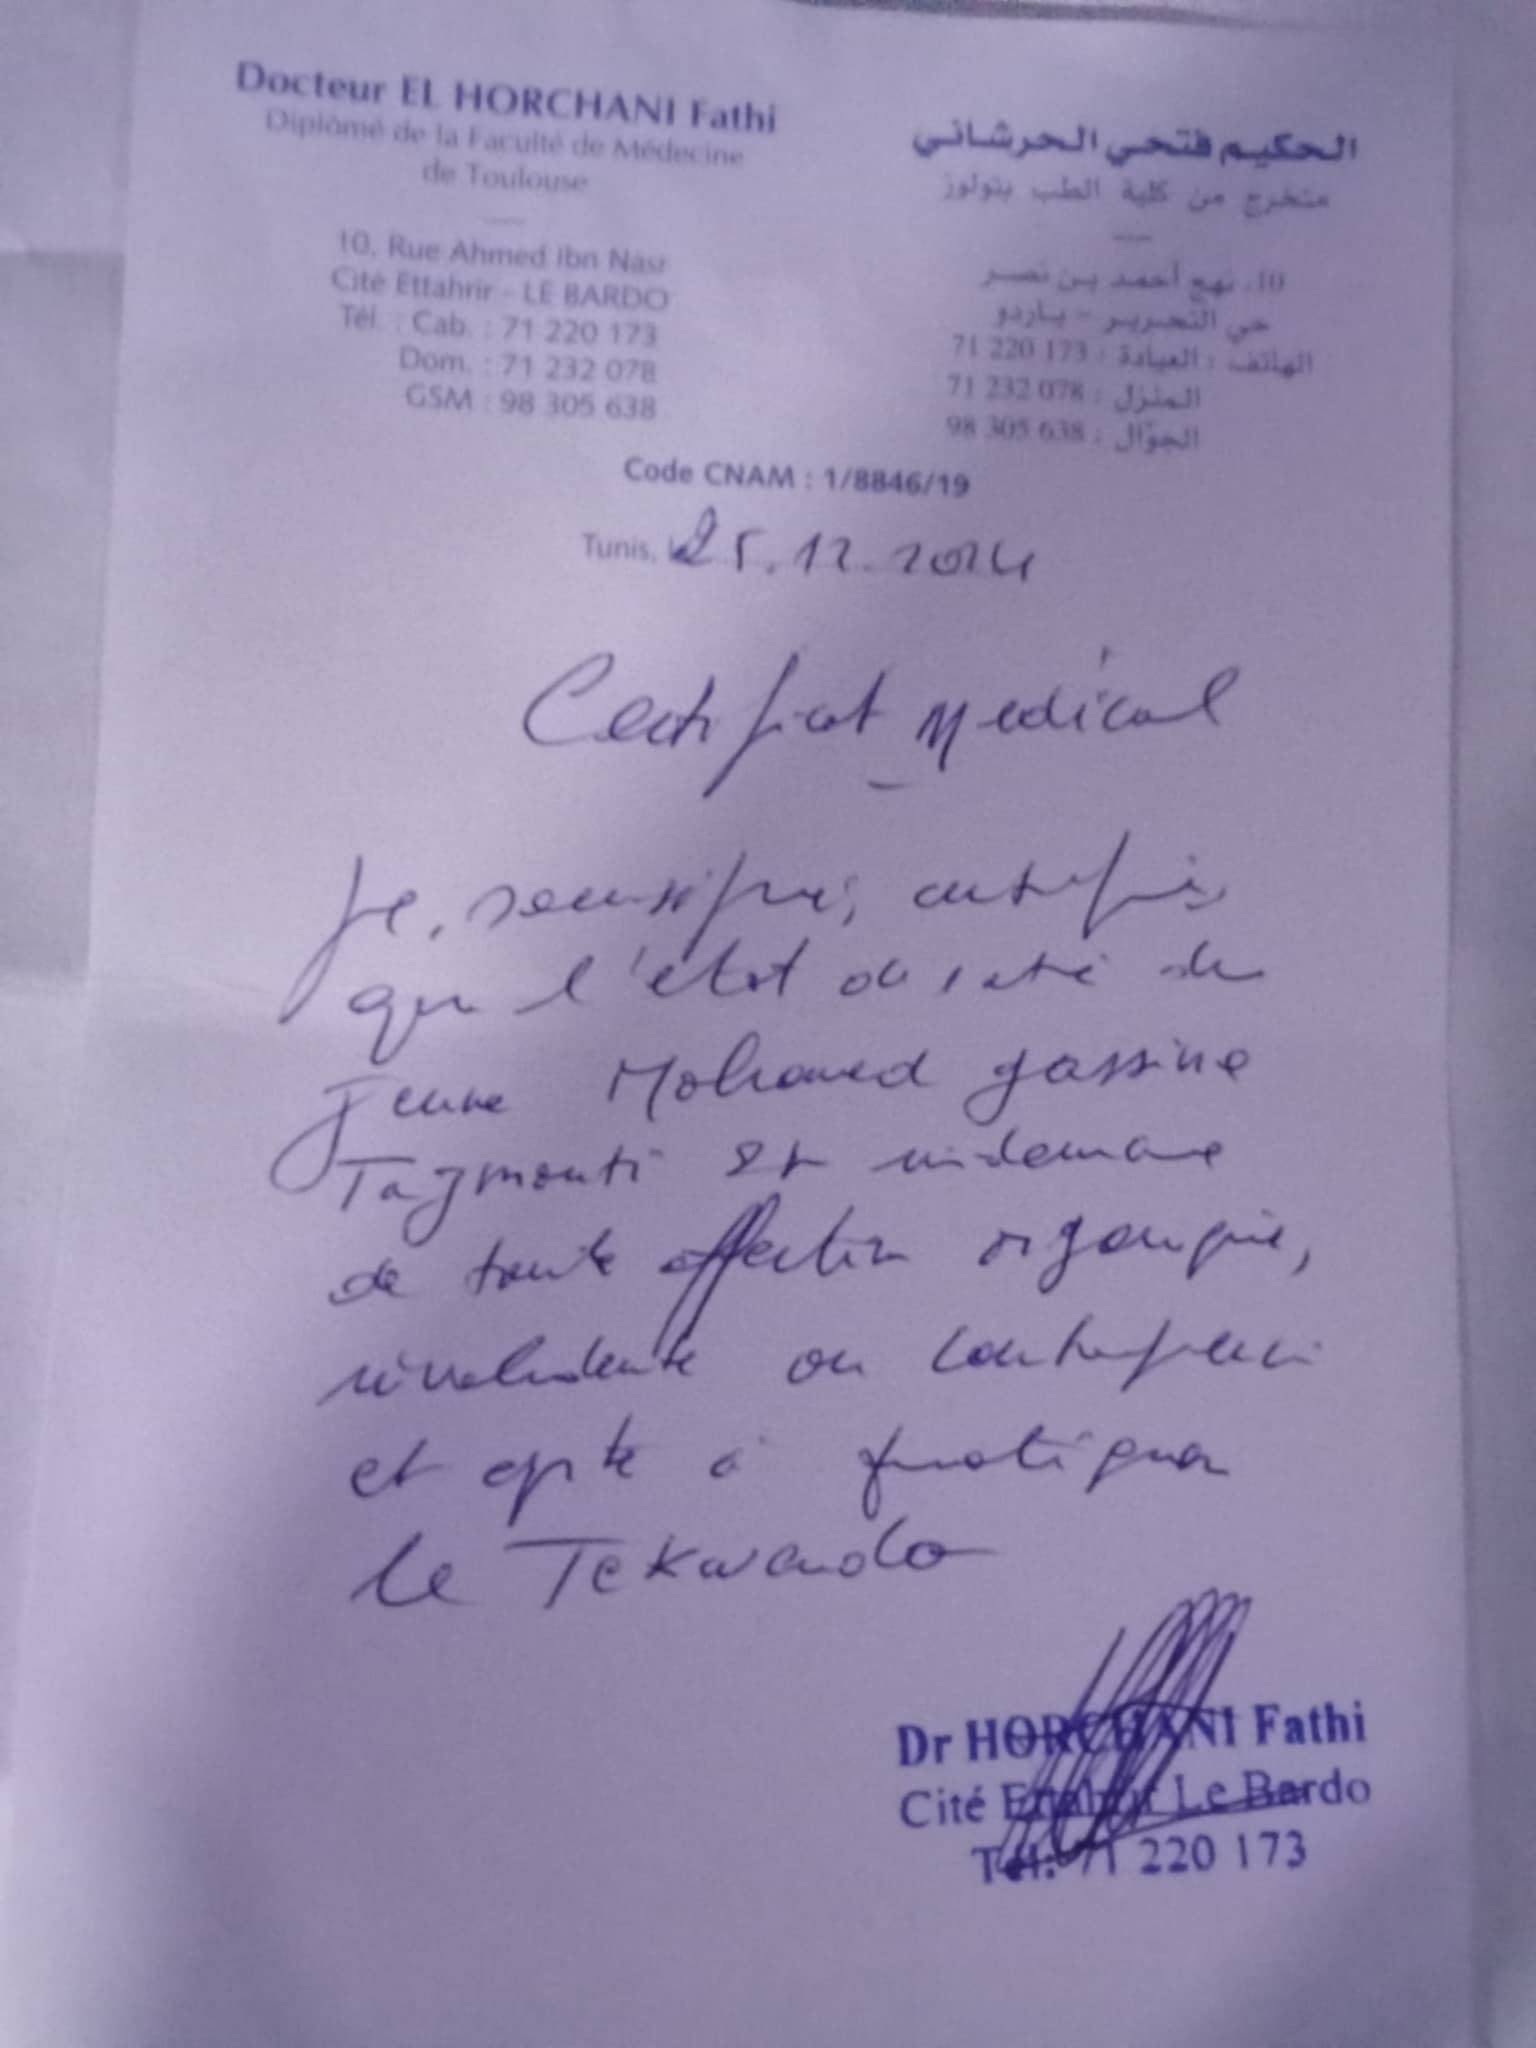 Docteur EL HORCHANI Fathi
Diplômé de la Faculté de Médecine
de Toulouse
10, Rue Ahmed Ibn Nasr
Cité Ettahrir - LE BARDO
Tél. : Cab. : 71 220 173
Dom. : 71 232 078
GSM : 98 305 638
الحكيم فتحي الحرشاني
متخرج من كلية الطب بتولوز
10، نهج أحمد بن نصر
حي التحرير - باردو
الهاتف : العيادة : 71 220 173
المنزل : 71 232 078
الجوّال : 98 305 638
Code CNAM : 1/8846/19
Tunis, le 25.12.2024
Certificat Médical
Je, soussigné, certifie
que l'état de santé du
jeune Mohamed Yassine
Tagmouti est indemne
de toute affection organique,
ou contagieuse
et apte à pratiquer
le Tekwando
Dr HORCHANI Fathi
Cité Ettahrir Le Bardo
Tél: 71 220 173